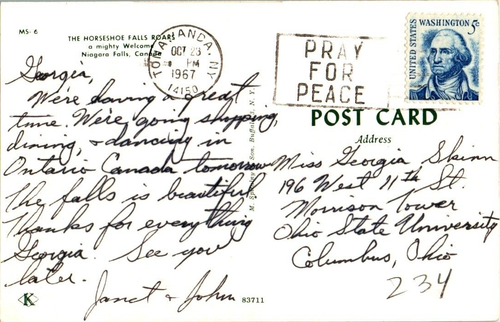 MS-6
THE HORSESHOE FALLS ROARS
a mighty Welcome
Niagara Falls,
TONAWANDA, N.Y.
OCT 23
PM
1967
14150
PRAY
FOR
PEACE
UNITED STATES
WASHINGTON 5c
Georgia,
We're having a great
time. We're going shopping,
dining, & dancing in
Ontario Canada tomorrow
The falls is beautiful
Thanks for everything
Georgia. See you
later.
Janet & John
K
83711
POST CARD
Address
Miss Georgia Skinn
196 West 11th St.
Morrison Tower
Ohio State University
Columbus, Ohio
234